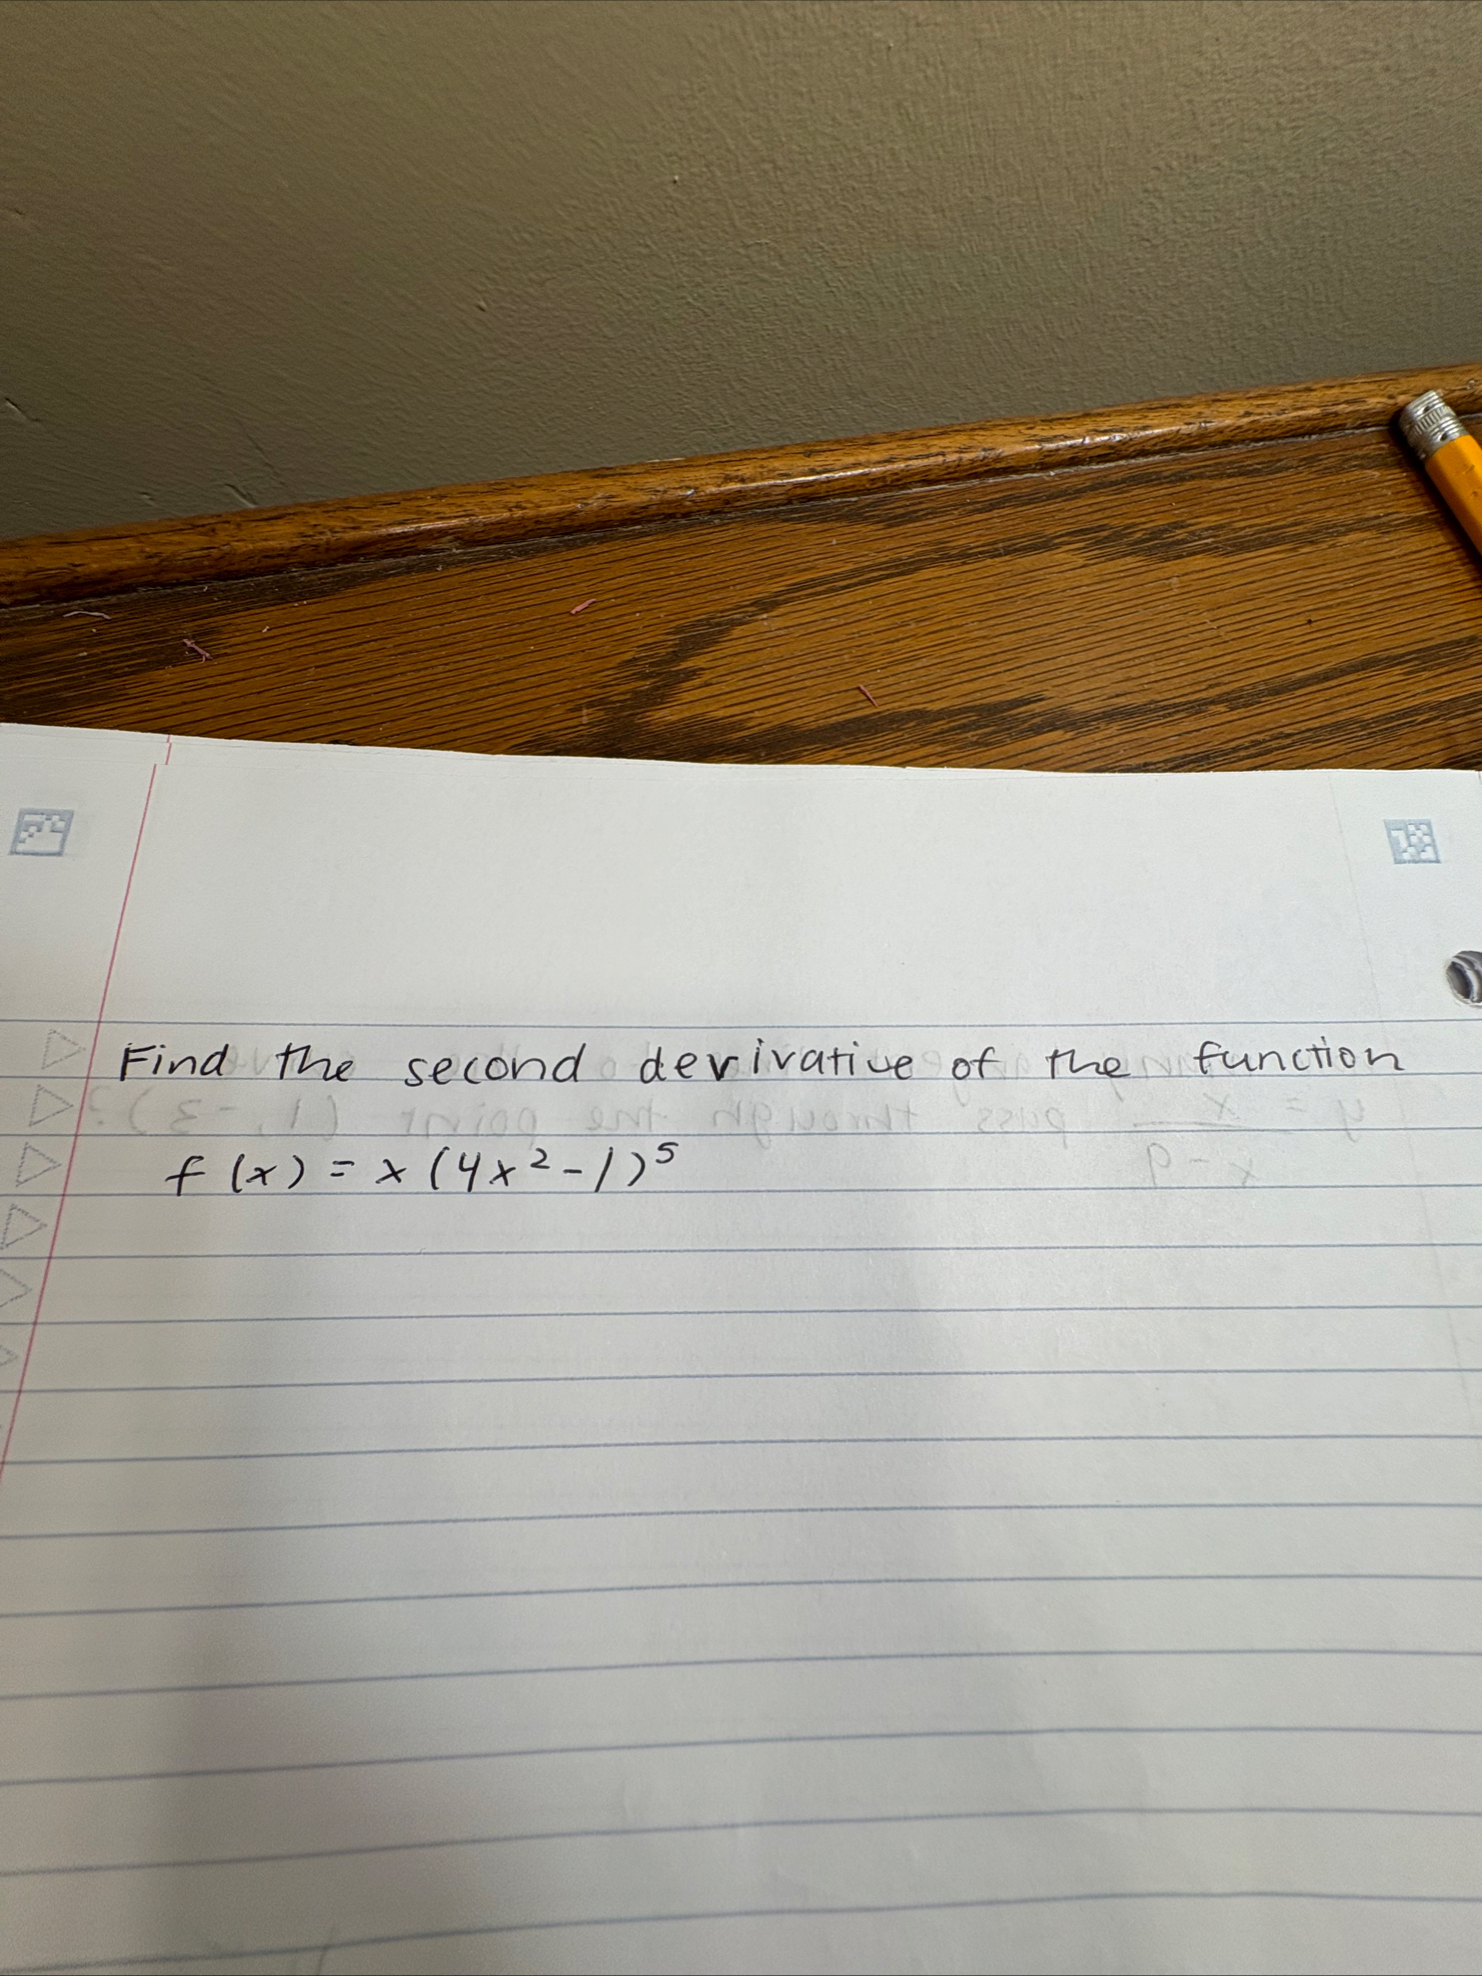 Find the second derivative of the function
f(x) = x(4x²-1)⁵